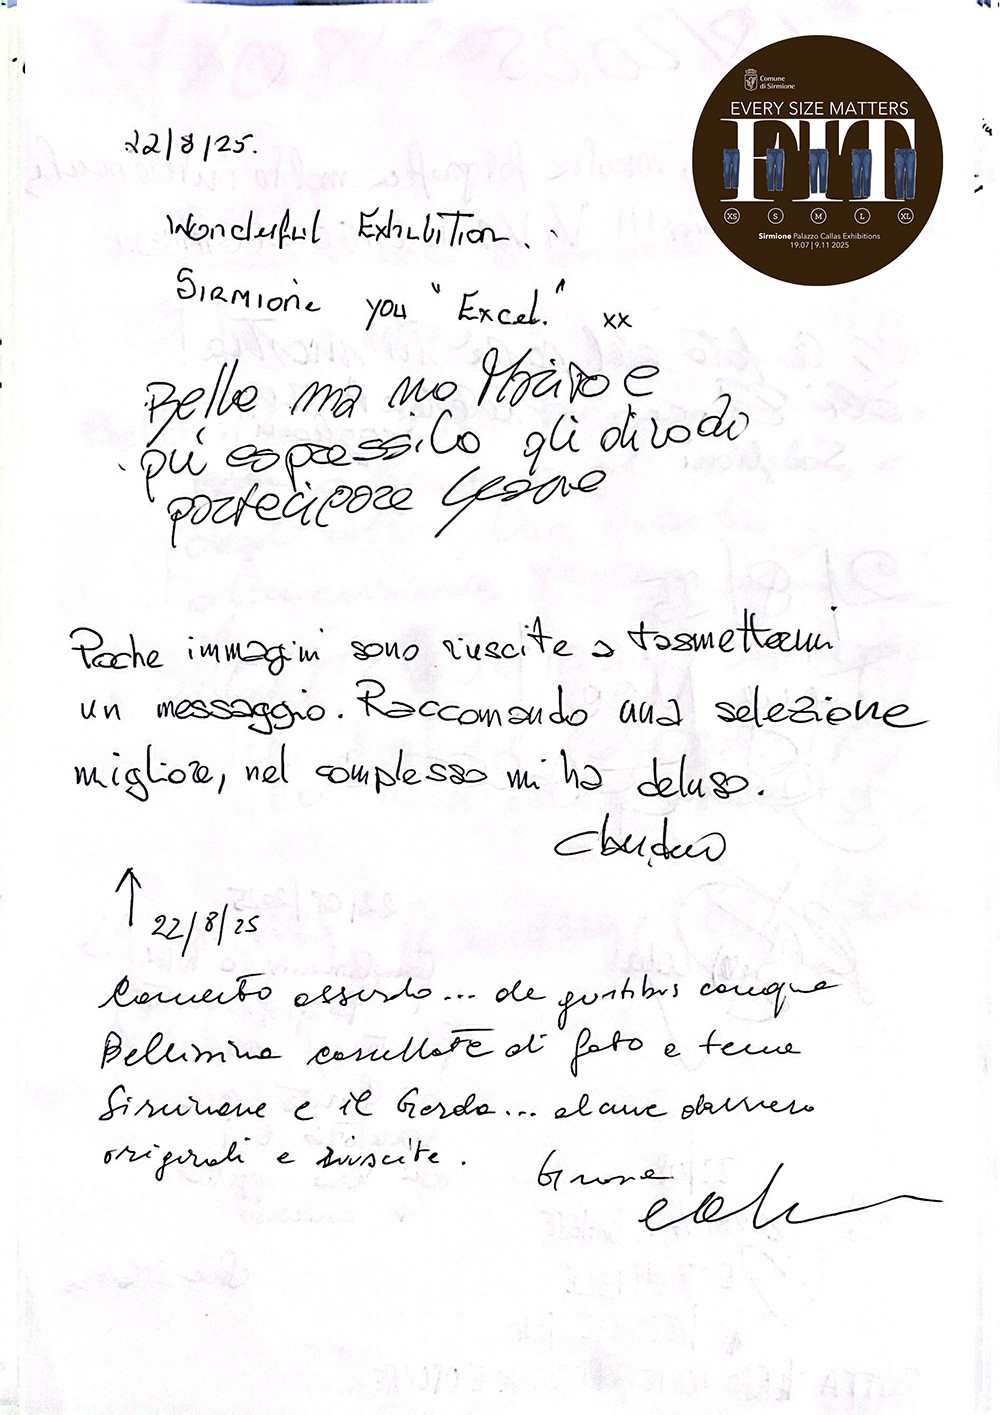 Comune
di Sirmione
EVERY SIZE MATTERS
FIT
XS S M L XL
Sirmione Palazzo Callas Exhibitions
19.07 | 9.11 2025
22/8/25.
Wonderful Exhibition..
Sirmione you "Excel." xx
Bella ma no
più espressivo gli di vodo
partecipare
Poche immagini sono riuscite a trasmettermi
un messaggio. Raccomando una selezione
migliore, nel complesso mi ha deluso.
↑ 22/8/25
Comento assurdo... de gustibus comque
Bellissima carellate di foto e tema
Sirmione e il Garda... alcune davvero
originali e riuscite.